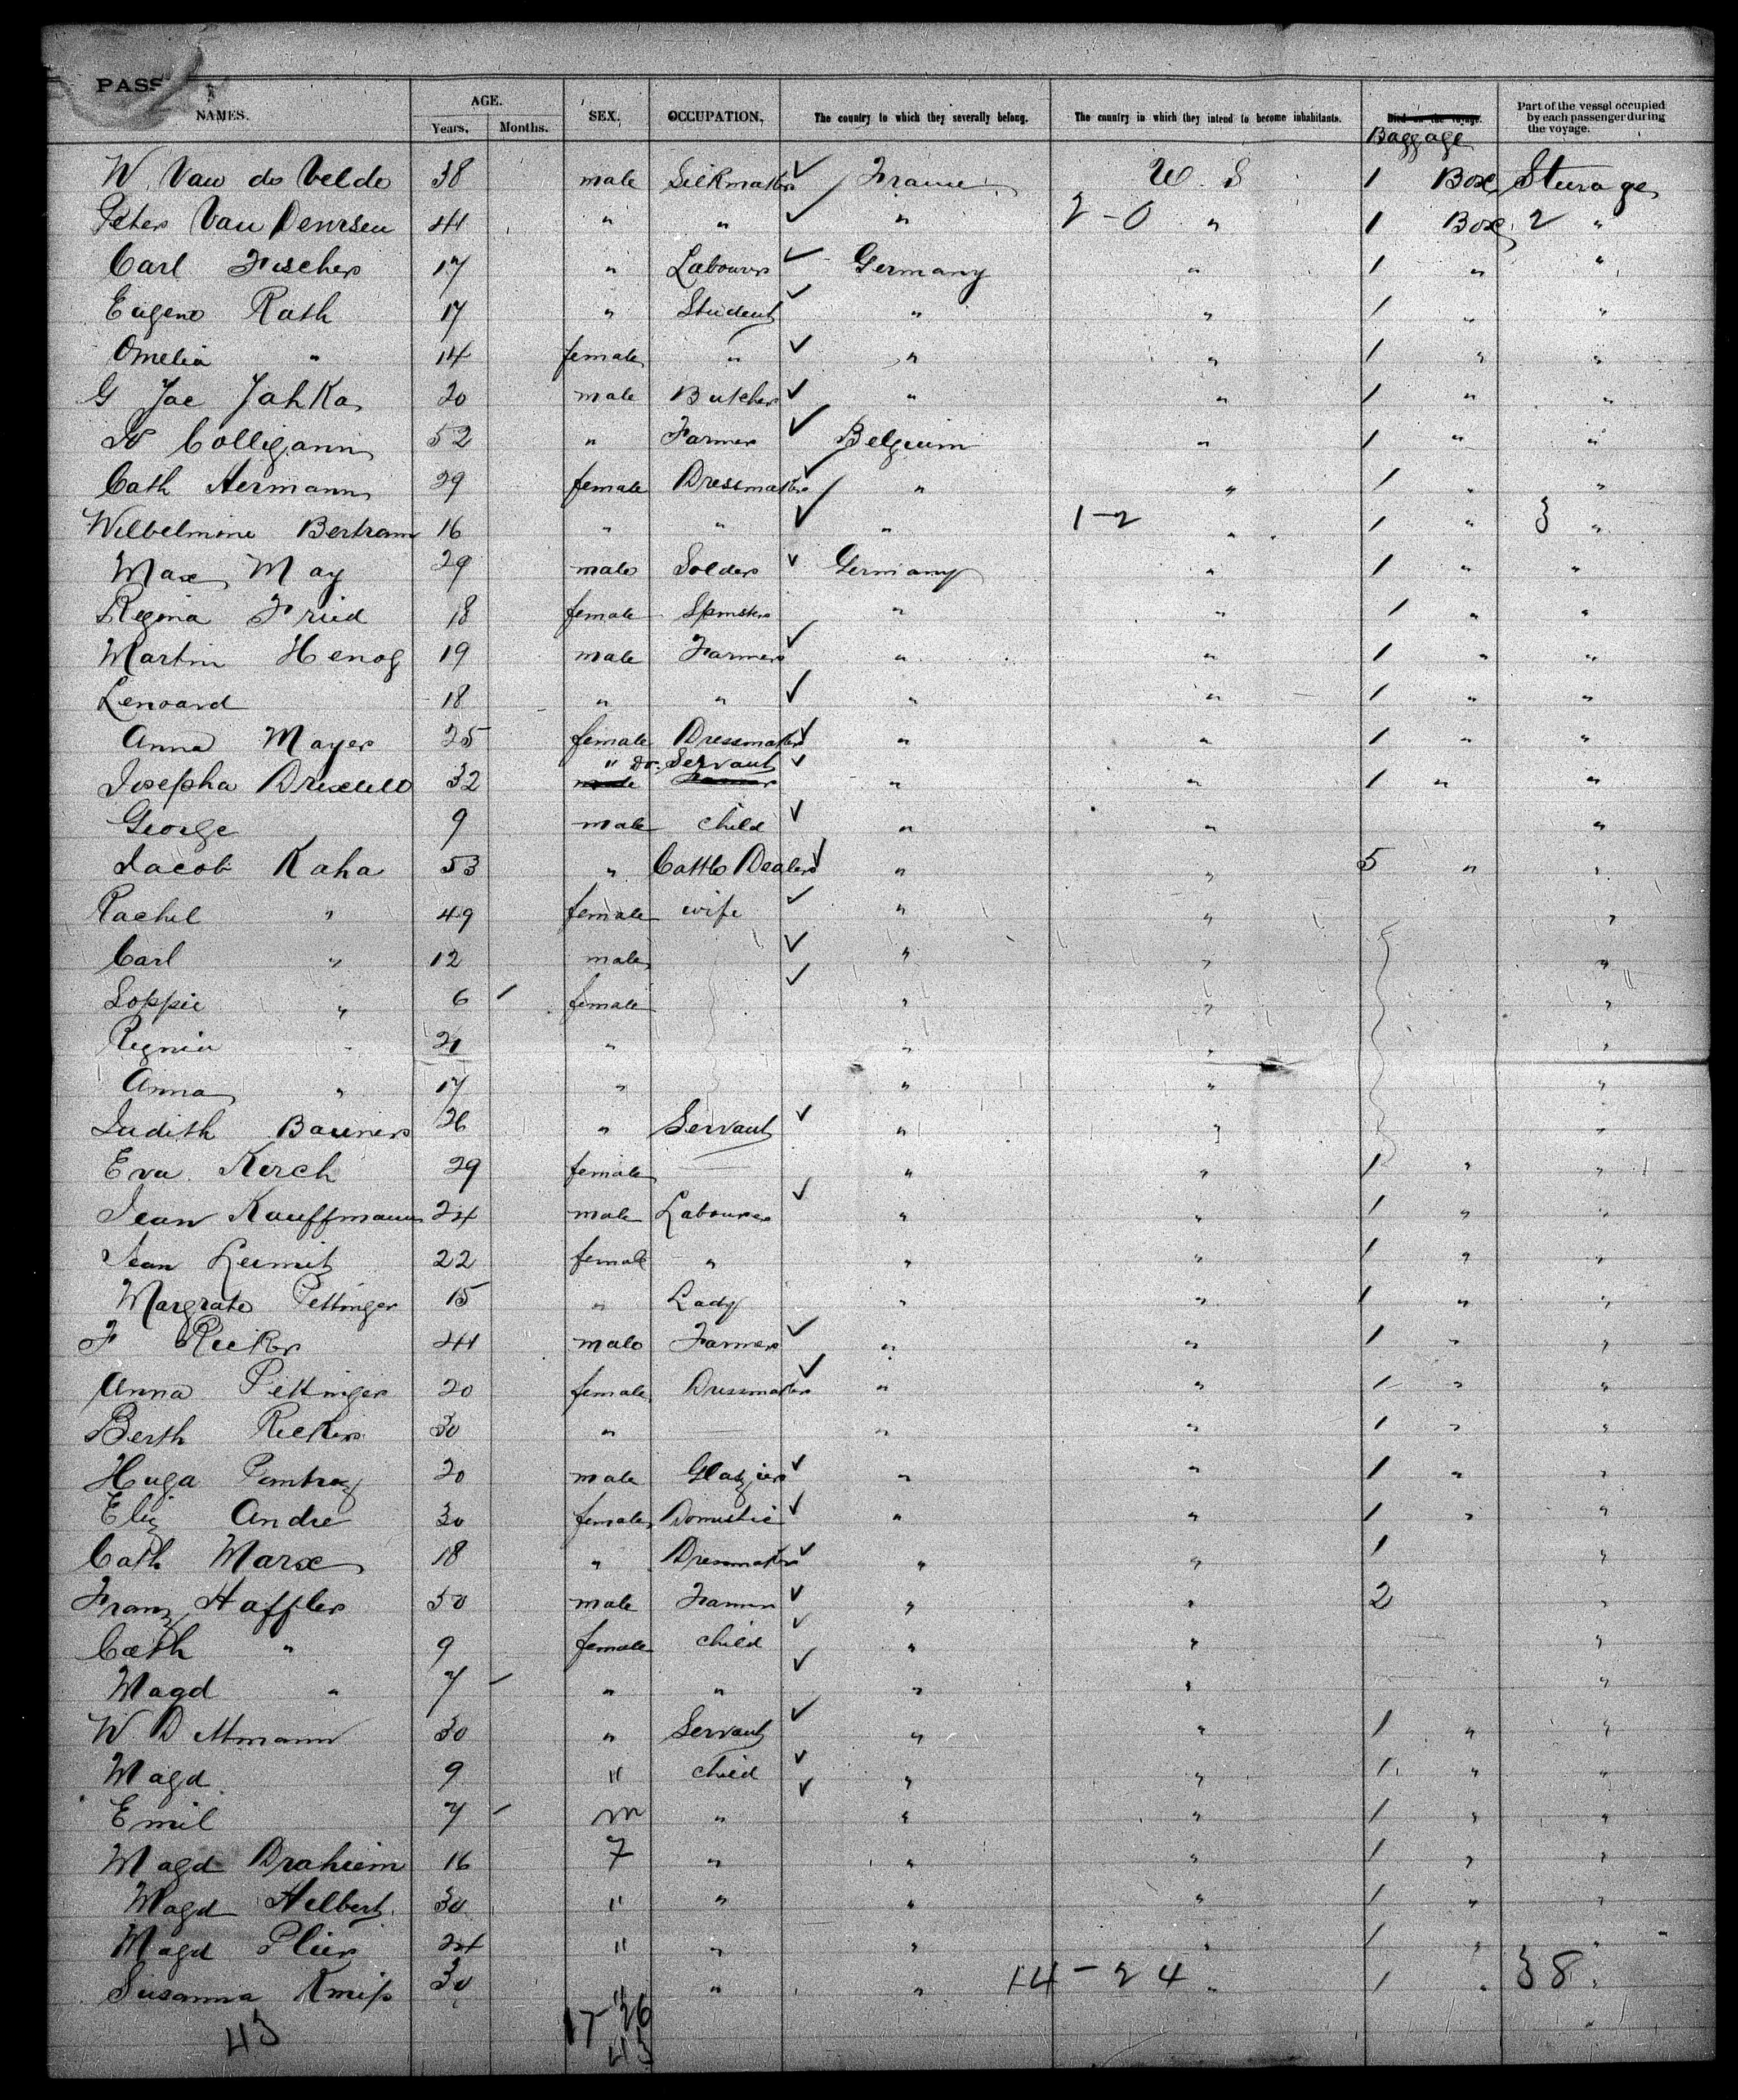 PASS
NAMES. AGE. Years. Months. SEX. OCCUPATION. The country to which they severally belong. The country in which they intend to become inhabitants. Died on the voyage. Baggage Part of the vessel occupied by each passenger during the voyage.
W. Van de Velde 38 male Silkmaker ✓ France U. S 1 Box Sturage
Peter Van Deursen 44 " " ✓ " 2-0 " 1 Box 2 "
Carl Fischer 17 " Labourer ✓ Germany " 1 " "
Eugene Rath 17 " Student ✓ " " 1 " "
Omelia " 14 female " ✓ " " 1 " "
G Jac Jahka 20 male Butcher ✓ " " 1 " "
N Colligann 52 " Farmer ✓ Belgium " 1 " "
Cath Hermann 29 female Dressmaker ✓ " " 1 " "
Wilbelmine Bertram 16 " " ✓ " 1-2 " 1 " 3 "
Max May 29 male Solder ✓ Germany " 1 " "
Regina Fried 18 female Spinster " " 1 " "
Martin Henog 19 male Farmer ✓ " " 1 " "
Lenoard 18 " " ✓ " " 1 " "
Anna Mayer 25 female Dressmaker ✓ " " 1 " "
Josepha Drexcell 32 " Do. Servant ✓ " " 1 " "
George 9 male child ✓ " " "
Jacob Kaha 53 " Cattle Dealer ✓ " " 5 " "
Rachel " 49 female wife ✓ " " "
Carl " 12 male ✓ " " "
Soppie " 6 / female ✓ " " "
Regnia " 21 " " " "
Anna " 17 " " " "
Judith Bauner 26 " Servant ✓ " " "
Eva Kerch 29 female " " 1 " "
Jean Kauffmann 24 male Labourer ✓ " " 1 " "
Jean Lermit 22 female " " " 1 " "
Margrate Pettinger 15 " Lady " " 1 " "
F Reeker 44 male Farmer ✓ " " 1 " "
Anna Pettinger 20 female Dressmaker ✓ " " 1 " "
Berth Recker 30 " " " 1 " "
Huga 20 male Glazier ✓ " " 1 " "
Eliz Andre 30 female Domestic ✓ " " 1 " "
Cath Marx 18 " Dressmaker ✓ " " 1 "
Franz Haffler 50 male Farmer ✓ " " 2 "
Cath " 9 female child ✓ " " "
Magd " 7 / " " ✓ " " "
W. Dittmann 30 " Servant ✓ " " 1 " "
Magd 9 " child ✓ " " 1 " "
Emil 7 / m " ✓ " " 1 " "
Magd Draheim 16 7 " " " 1 " "
Magd Helbert 30 " " " " 1 " "
Magd Plier 24 " " " " 1 " "
Susanna Kneip 30 " " " 14-24 " 1 " 38 "
43 17-26
43